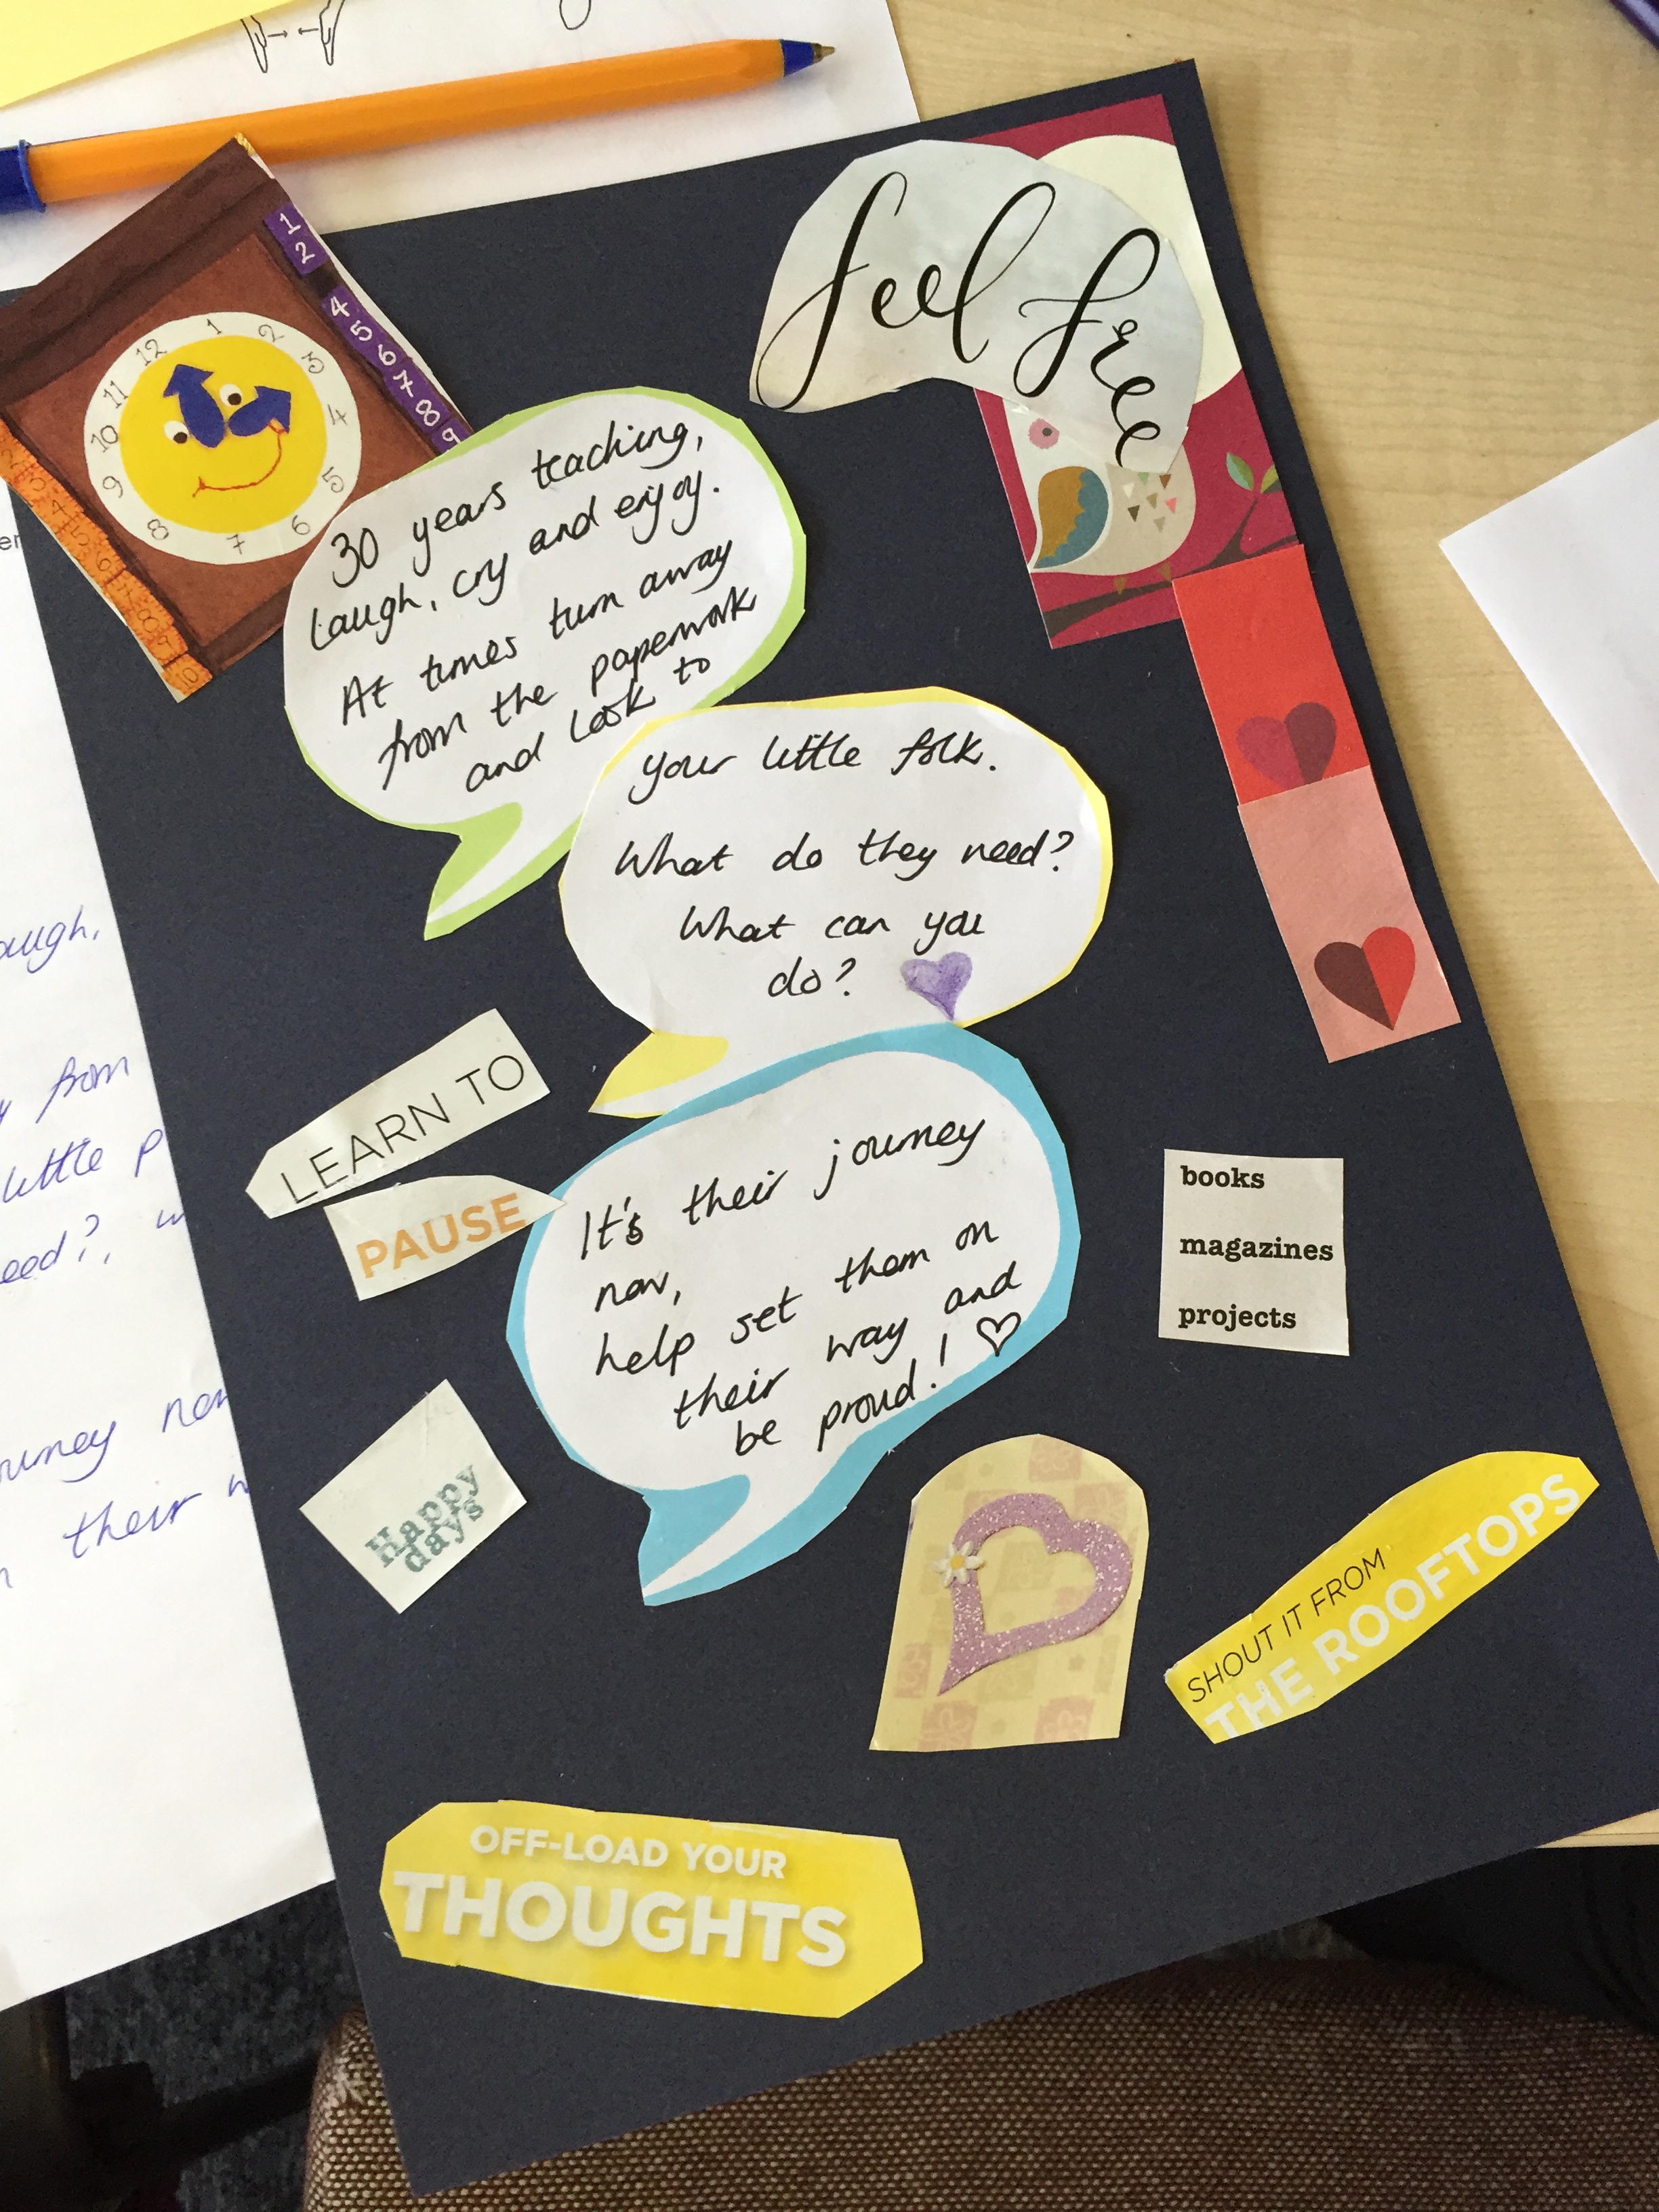 feel free
1
2
4
5
6
7
8
9
12
1
2
3
4
5
6
7
8
9
10
11
30 years teaching,
laugh, cry and enjoy.
At times turn away
from the paperwork
and look to
your little folk.
What do they need?
What can you
do?
LEARN TO
PAUSE
It's their journey
now,
help set them on
their way and
be proud!
books
magazines
projects
Happy
days
SHOUT IT FROM
THE ROOFTOPS
OFF-LOAD YOUR
THOUGHTS
augh,
from
little p
eed?,
urney now
their w